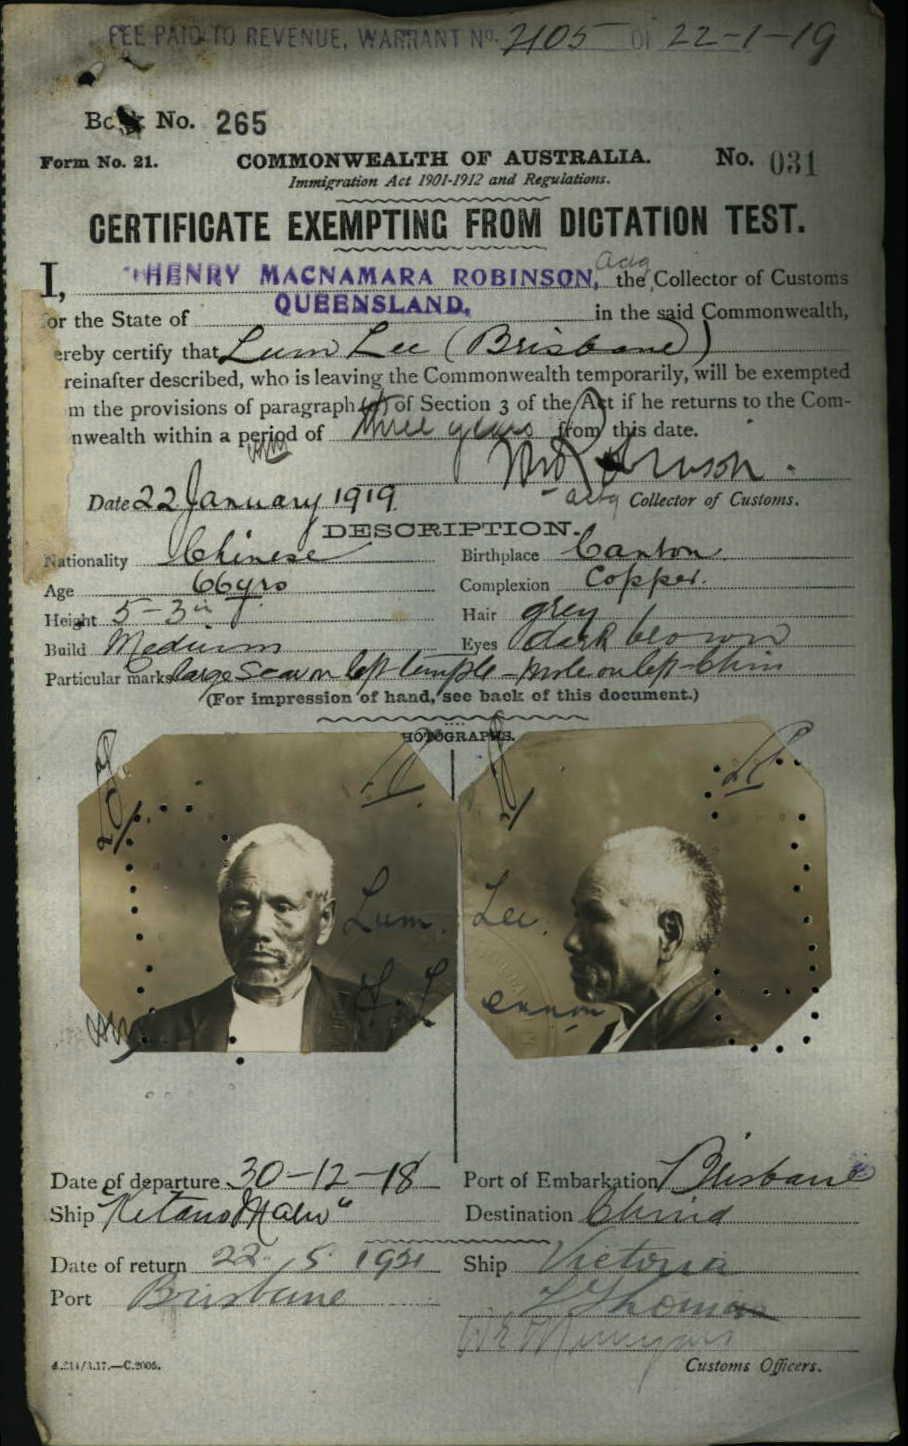 FEE PAID TO REVENUE, WARRANT No. 2105 OF 22-1-19
Book No. 265
Form No. 21. COMMONWEALTH OF AUSTRALIA. No. 031
Immigration Act 1901-1912 and Regulations.
CERTIFICATE EXEMPTING FROM DICTATION TEST.
I, HENRY MACNAMARA ROBINSON, actg the Collector of Customs
or the State of QUEENSLAND, in the said Commonwealth,
ereby certify that Lum Lee (Brisbane)
reinafter described, who is leaving the Commonwealth temporarily, will be exempted
m the provisions of paragraph (a) of Section 3 of the Act if he returns to the Com-
nwealth within a period of three years from this date.
Date 22 January 1919 actg Collector of Customs.
DESCRIPTION.
Nationality Chinese Birthplace Canton
Age 66 yrs Complexion Copper.
Height 5-3 in Hair grey
Build Medium Eyes dark brown
Particular marks large scar on left temple - mole on left chin
(For impression of hand, see back of this document.)
HOTOGRAPHS.
Lum. Lee.
Date of departure 30-12-18 Port of Embarkation Brisbane
Ship "Kitano Maru" Destination China
Date of return 22. 5. 1921 Ship Victoria
Port Brisbane
Customs Officers.